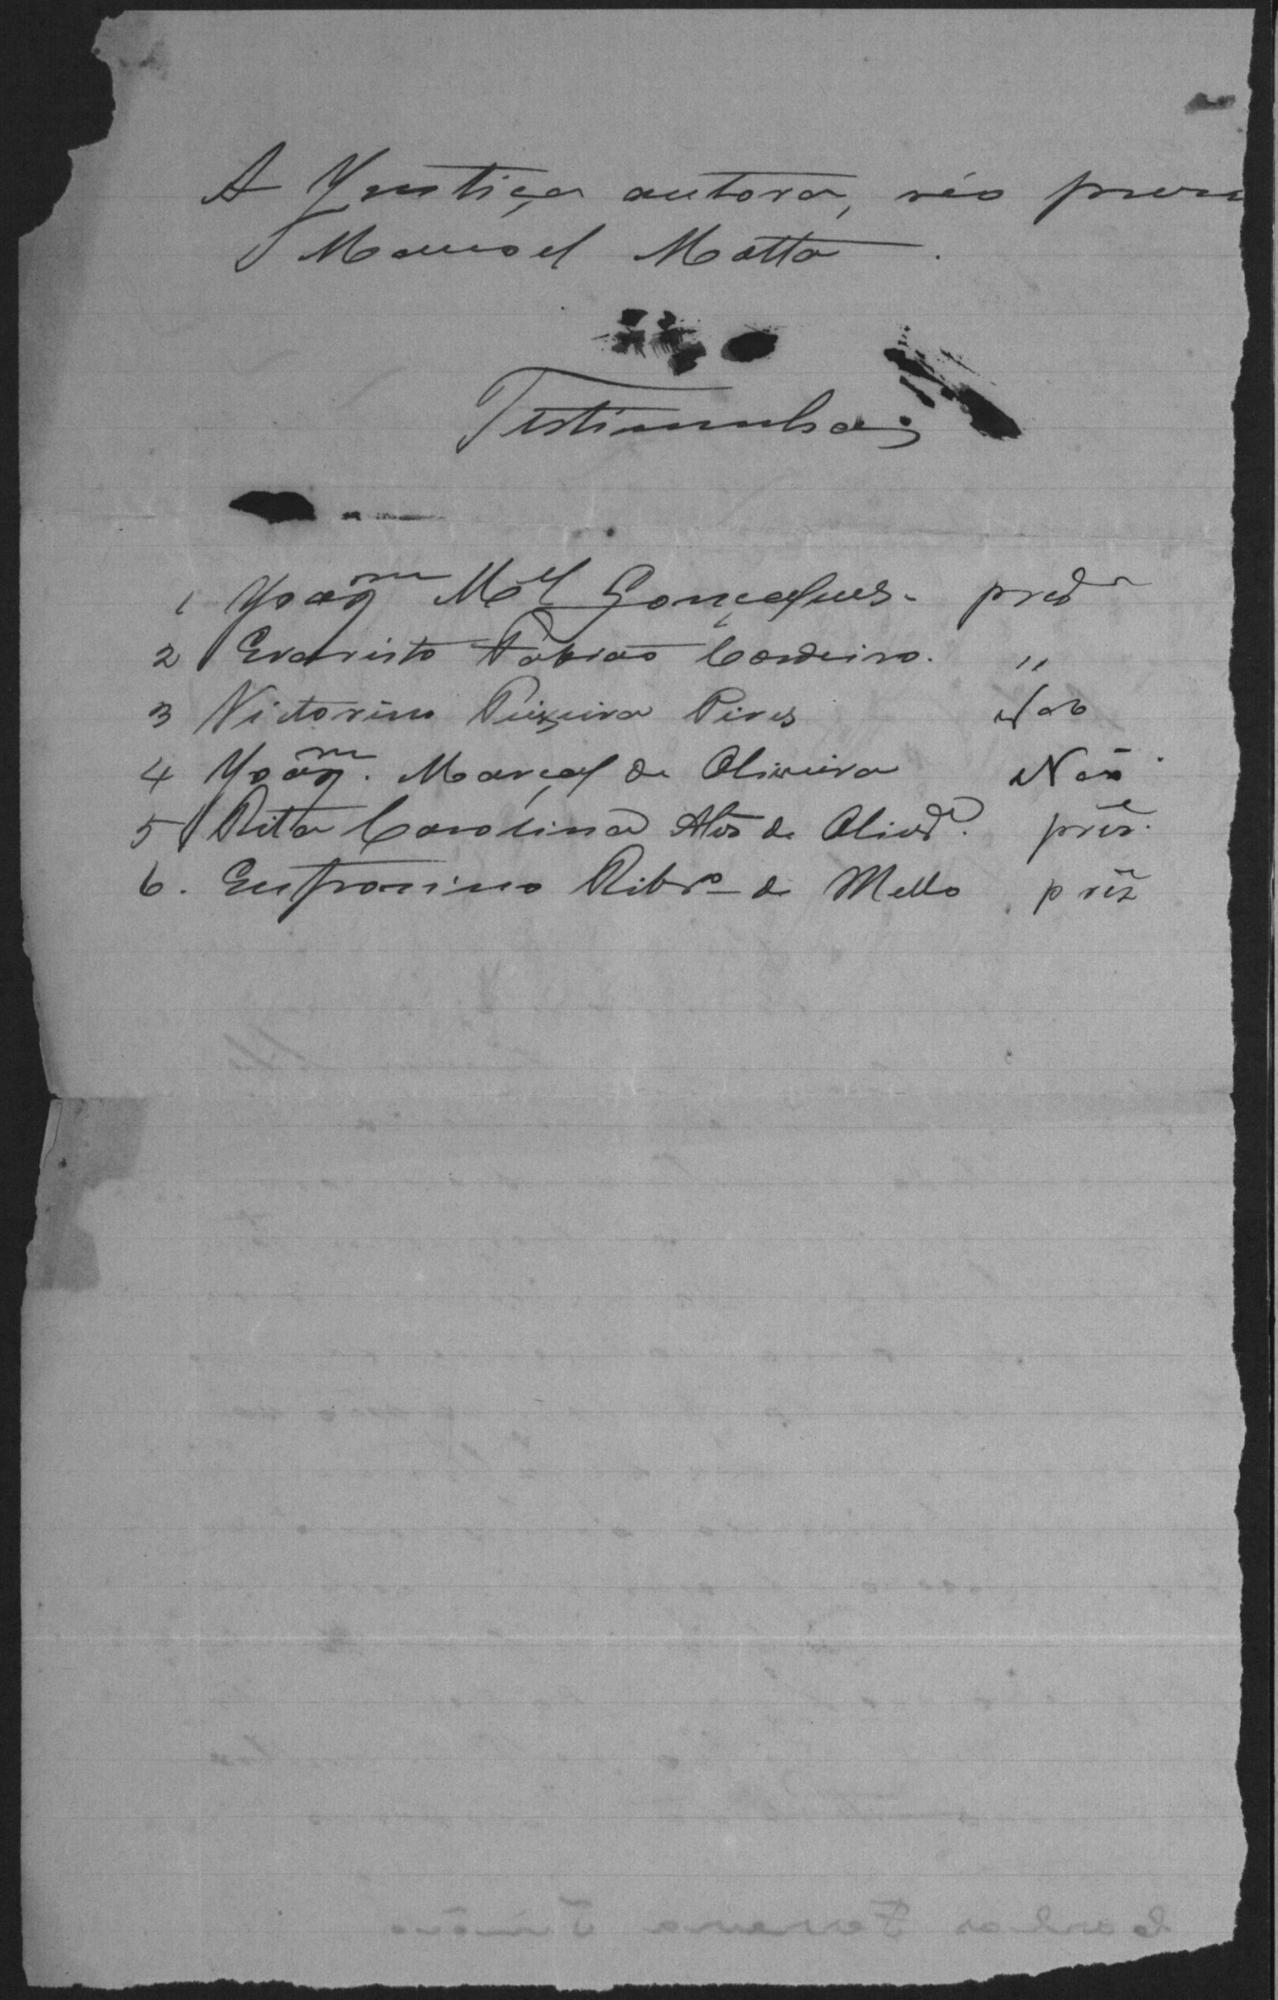 A Justiça autora, réo
Manoel Matta.
Testimunhas
1 Joaqm Mel Gonçalves.
2 Evaristo Fabião Cordeiro. "
3 Victorino Teixeira Pires Não
4 Joaqm. Marçal de Oliveira Não
5 Rita Carolina de Olivra. pres.
6. Eufrosino Ribro de Mello prez